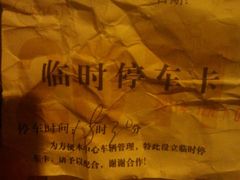 日期:
临时停车卡
停车时间: 时30分
为方便本中心车辆管理，特此设立临时停
车卡，请予以配合，谢谢合作！